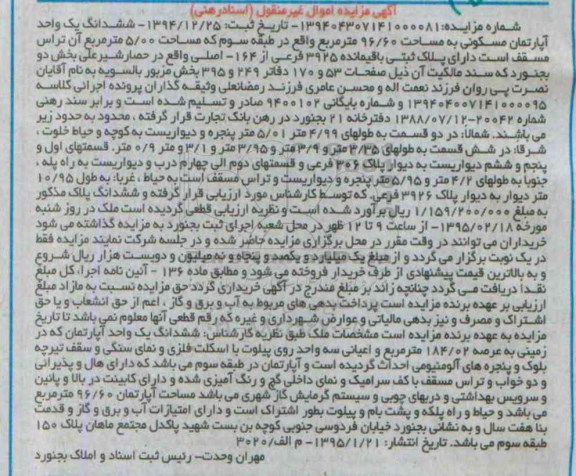 آگهی مزایده اموال غیرمنقول (اسنادرهنی)
شماره مزایده: ۱۳۹۴۰۴۳۰۷۱۴۱۰۰۰۰۸۱- تاریخ ثبت: ۱۳۹۴/۱۲/۲۵- ششدانگ یک واحد
آپارتمان مسکونی به مساحت ۹۶/۶۰ مترمربع واقع در طبقه سوم که مساحت ۵/۰۰ مترمربع آن تراس
مسقف است دارای پلاک ثبتی باقیمانده ۳۹۲۵ فرعی از ۱۶۴- اصلی واقع در حصارشیرعلی بخش دو
بجنورد که سند مالکیت آن ذیل صفحات ۵۳ و ۱۷۰ دفاتر ۲۴۹ و ۳۹۵ بخش مزبور بالسویه به نام آقایان
نصرت پی روان فرزند نعمت اله و محسن عامری فرزند رمضانعلی وثیقه گذاران پرونده اجرائی کلاسه
۱۳۹۴۰۴۰۰۷۱۴۱۰۰۰۰۹۵ و شماره بایگانی ۹۴۰۰۱۰۲ صادر و تسلیم شده است و برابر سند رهنی
شماره ۲۰۰۴۲-۱۳۸۸/۰۷/۱۲ دفترخانه ۲۱ بجنورد در رهن بانک تجارت قرار گرفته، محدود به حدود زیر
می باشند. شمالا: در دو قسمت به طولهای ۴/۹۹ متر و ۵/۰۱ متر پنجره و دیواریست به کوچه و حیاط خلوت،
شرقا: در شش قسمت به طولهای ۳/۳۵ متر و ۳/۹ متر و ۳/۹۵ متر و ۳/۱ متر و ۰/۹ متر. قسمتهای اول و
پنجم و ششم دیواریست به دیوار پلاک ۳۰۶ فرعی و قسمتهای دوم الی چهارم درب و دیواریست به راه پله،
جنوبا به طولهای ۴/۲ متر و ۵/۹۵ متر پنجره و دیواریست و تراس مسقف است به حیاط، غربا: به طول ۱۰/۹۵
متر دیوار به دیوار پلاک ۳۹۲۶ فرعی. که توسط کارشناس مورد ارزیابی قرار گرفته و ششدانگ پلاک مذکور
به مبلغ ۱/۱۵۹/۲۰۰/۰۰۰ ریال برآورد شده است و نظریه ارزیابی قطعی گردیده است ملک در روز شنبه
مورخه ۱۳۹۵/۰۲/۱۸- از ساعت ۹ تا ۱۲ ظهر در محل شعبه اجرای ثبت بجنورد به مزایده گذاشته می شود
خریداران می توانند در وقت مقرر در محل برگزاری مزایده حاضر شده و در جلسه شرکت نمایند مزایده فقط
در یک نوبت برگزار می گردد و از مبلغ یک میلیارد و یکصد و پنجاه و نه میلیون و دویست هزار ریال شروع
و به بالاترین قیمت پیشنهادی از طرف خریدار فروخته می شود و مطابق ماده ۱۳۶- آئین نامه اجرا، کل مبلغ
نقدا دریافت می گردد چنانچه زائد بر مبلغ مندرج در آگهی خریداری گردد حق مزایده نسبت به مازاد مبلغ
ارزیابی بر عهده برنده مزایده است پرداخت بدهی های مربوط به آب و برق و گاز، اعم از حق انشعاب و یا حق
اشتراک و مصرف و نیز بدهی مالیاتی و عوارض شهرداری و غیره که رقم قطعی آنها معلوم نمی باشد تا تاریخ
مزایده به عهده برنده مزایده است مشخصات ملک طبق نظریه کارشناس: ششدانگ یک واحد آپارتمان که در
زمینی به عرصه ۱۸۴/۰۲ مترمربع و اعیانی سه واحد روی پیلوت با اسکلت فلزی و نمای سنگی و سقف تیرچه
بلوک و پنجره های آلومنیومی احداث گردیده است و آپارتمان در طبقه سوم می باشد که دارای هال و پذیرائی
و دو خواب و تراس مسقف با کف سرامیک و نمای داخلی گچ و رنگ آمیزی شده و دارای کابینت در بالا و پائین
و سرویس بهداشتی و دربهای چوبی و سیستم گرمایش گاز شهری می باشد مساحت آپارتمان ۹۶/۶۰ مترمربع
می باشد و حیاط و راه پلکه و پشت بام و پیلوت بطور اشتراک است و دارای امتیازات آب و برق و گاز و قدمت
بنا هفت سال و به نشانی بجنورد خیابان فردوسی جنوبی کوچه بن بست شهید پاکدل مجتمع ماهان پلاک ۱۵۰
طبقه سوم می باشد. تاریخ انتشار: ۱۳۹۵/۱/۲۱- م الف/۳۰۲۰
مهران وحدت- رئیس ثبت اسناد و املاک بجنورد